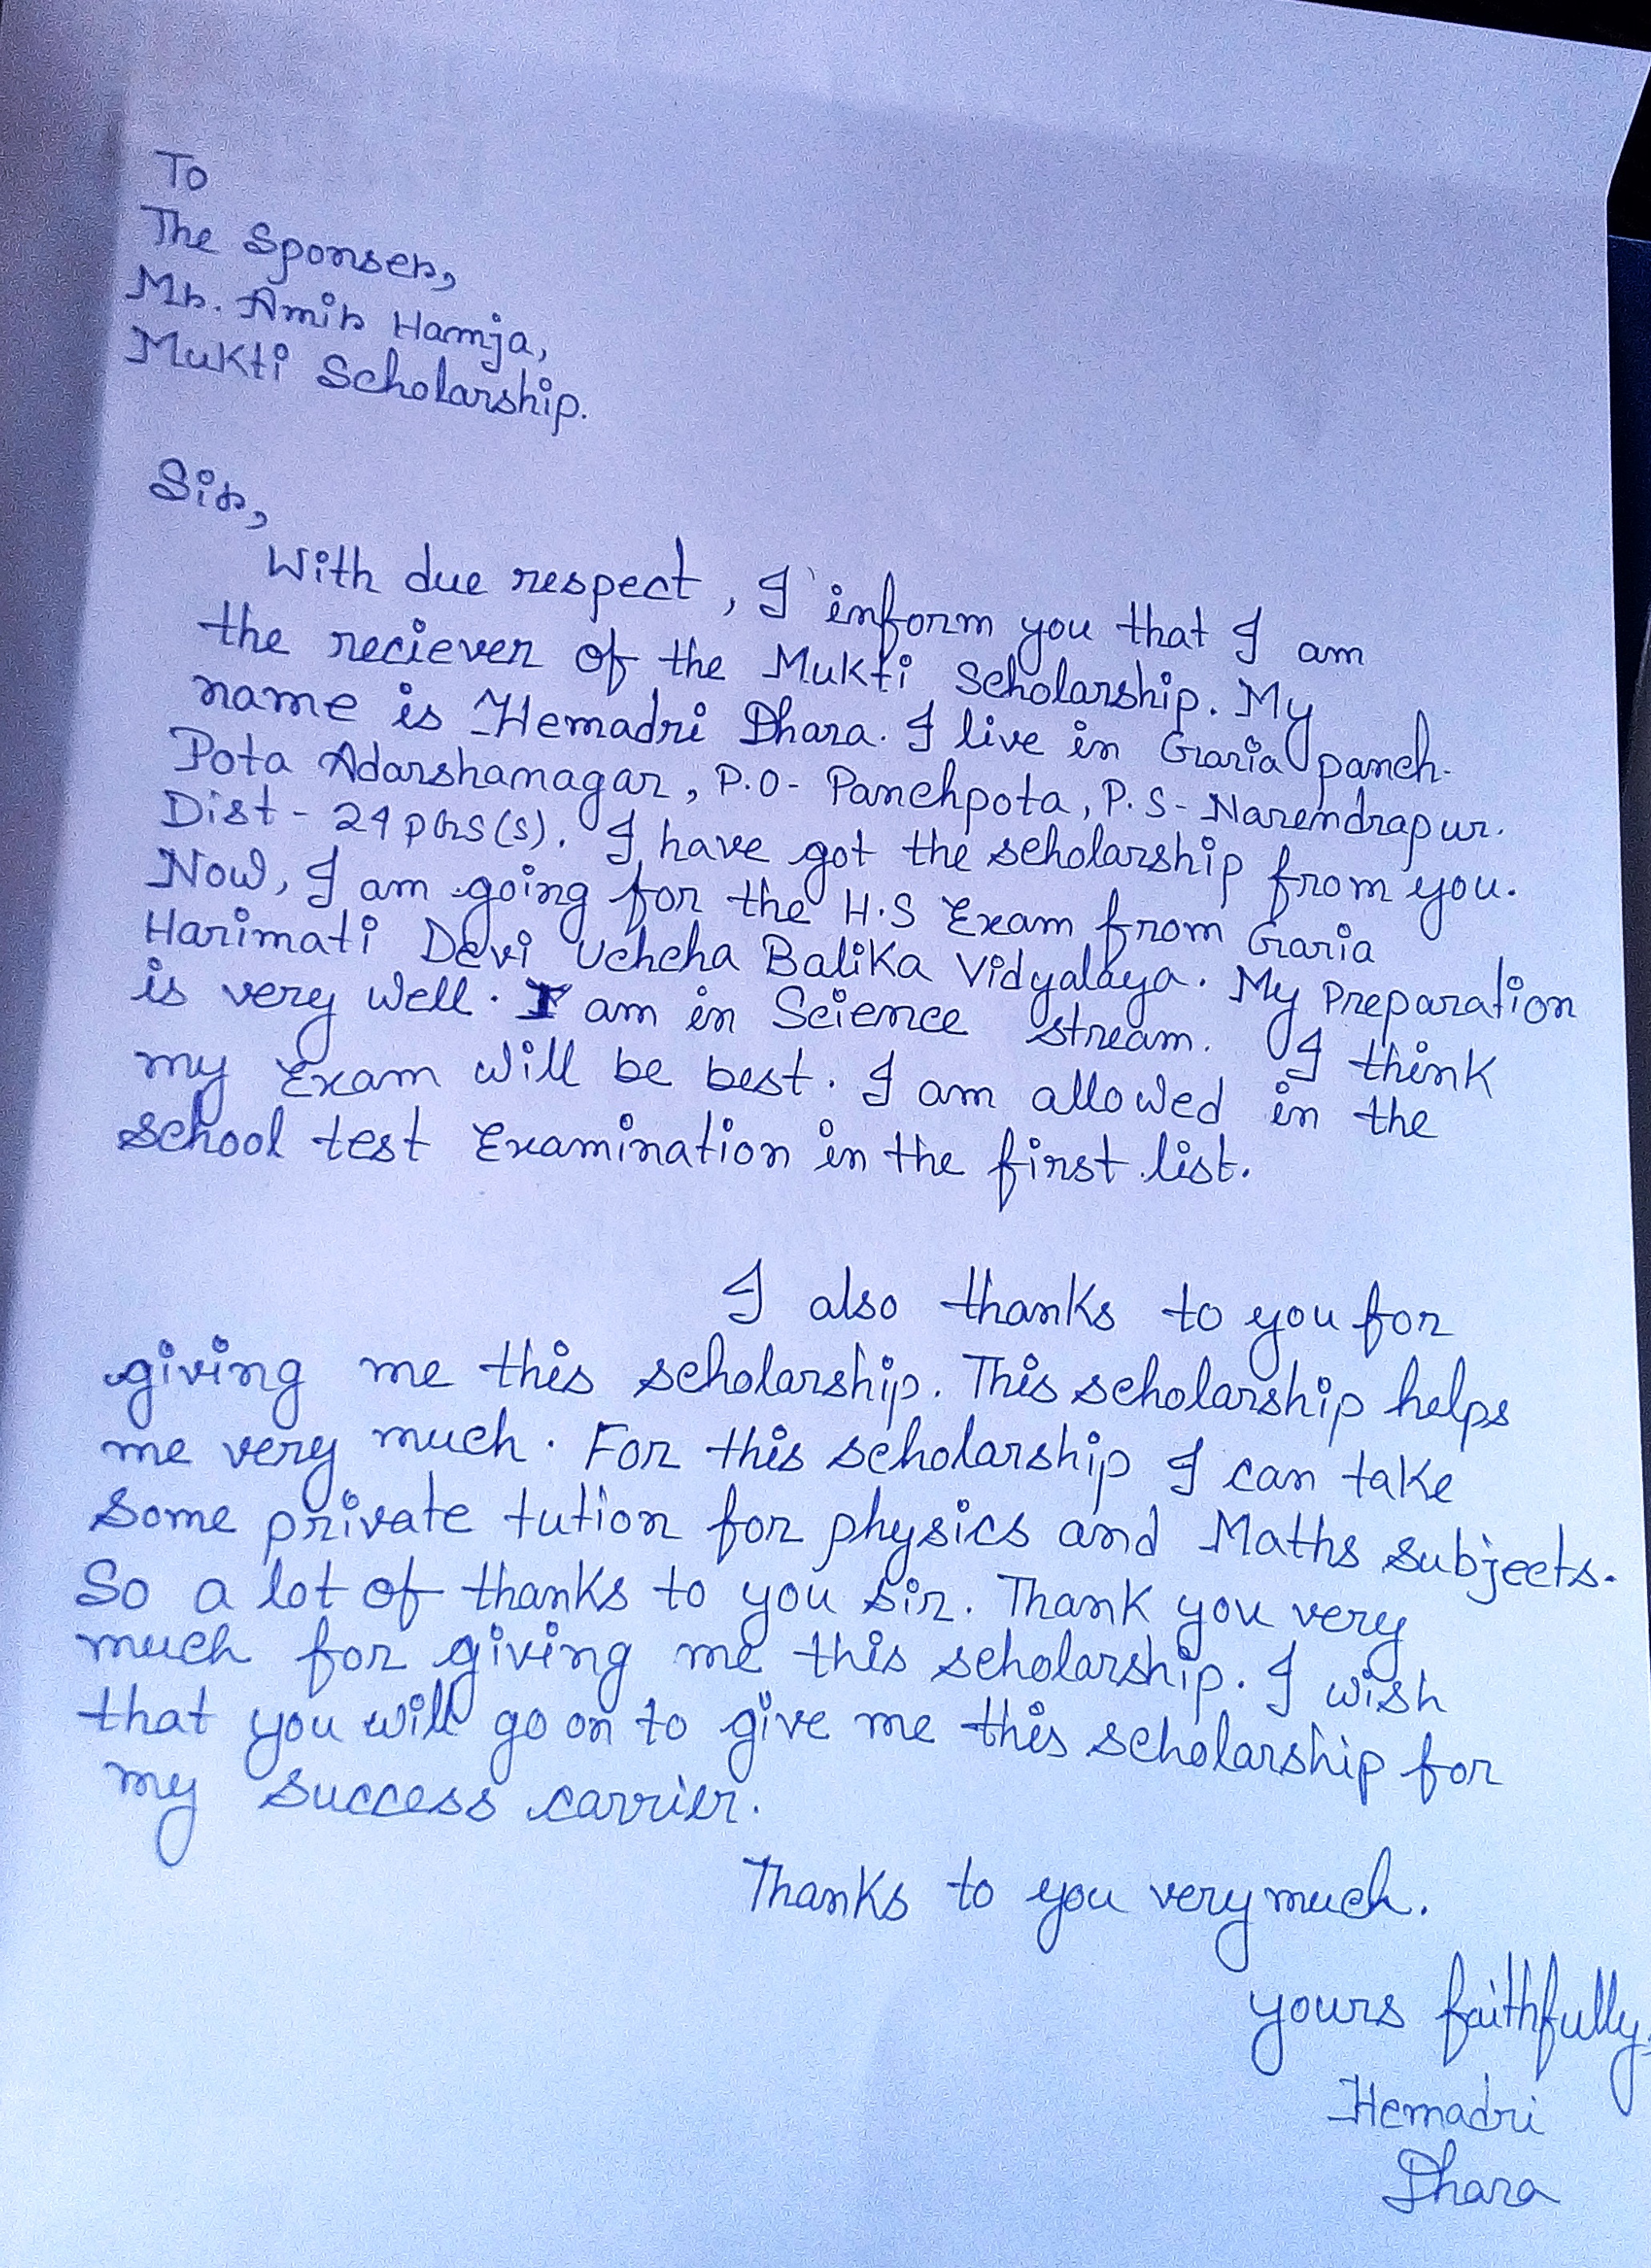 To
The Sponser,
Mr. Amir Hamja,
Mukti Scholarship.
Sir,
With due respect, I inform you that I am
the reciever of the Mukti Scholarship. My
name is Hemadri Dhara. I live in Garia panch-
Pota Adarshanagar, P.O- Panchpota, P.S- Narendrapur.
Dist - 24 pgs(s). I have got the scholarship from you.
Now, I am going for the H.S Exam from Garia
Harimati Devi Uchcha Balika Vidyalaya. My Preparation
is very well. I am in Science stream. I think
my Exam will be best. I am allowed in the
School test Examination in the first list.
I also thanks to you for
giving me this scholarship. This scholarship helps
me very much. For this scholarship I can take
Some private tution for physics and Maths subjects.
So a lot of thanks to you sir. Thank you very
much for giving me this scholarship. I wish
that you will go on to give me this scholarship for
my success carrier.
Thanks to you very much.
yours faithfully,
Hemadri
Dhara